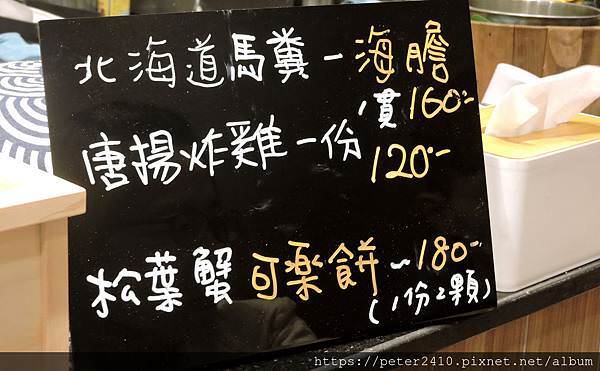 北海道馬糞一海膽
1貫160-
唐揚炸雞一份
120-
松葉蟹可樂餅~180-
(1份2顆)
https://peter2410.pixnet.net/album